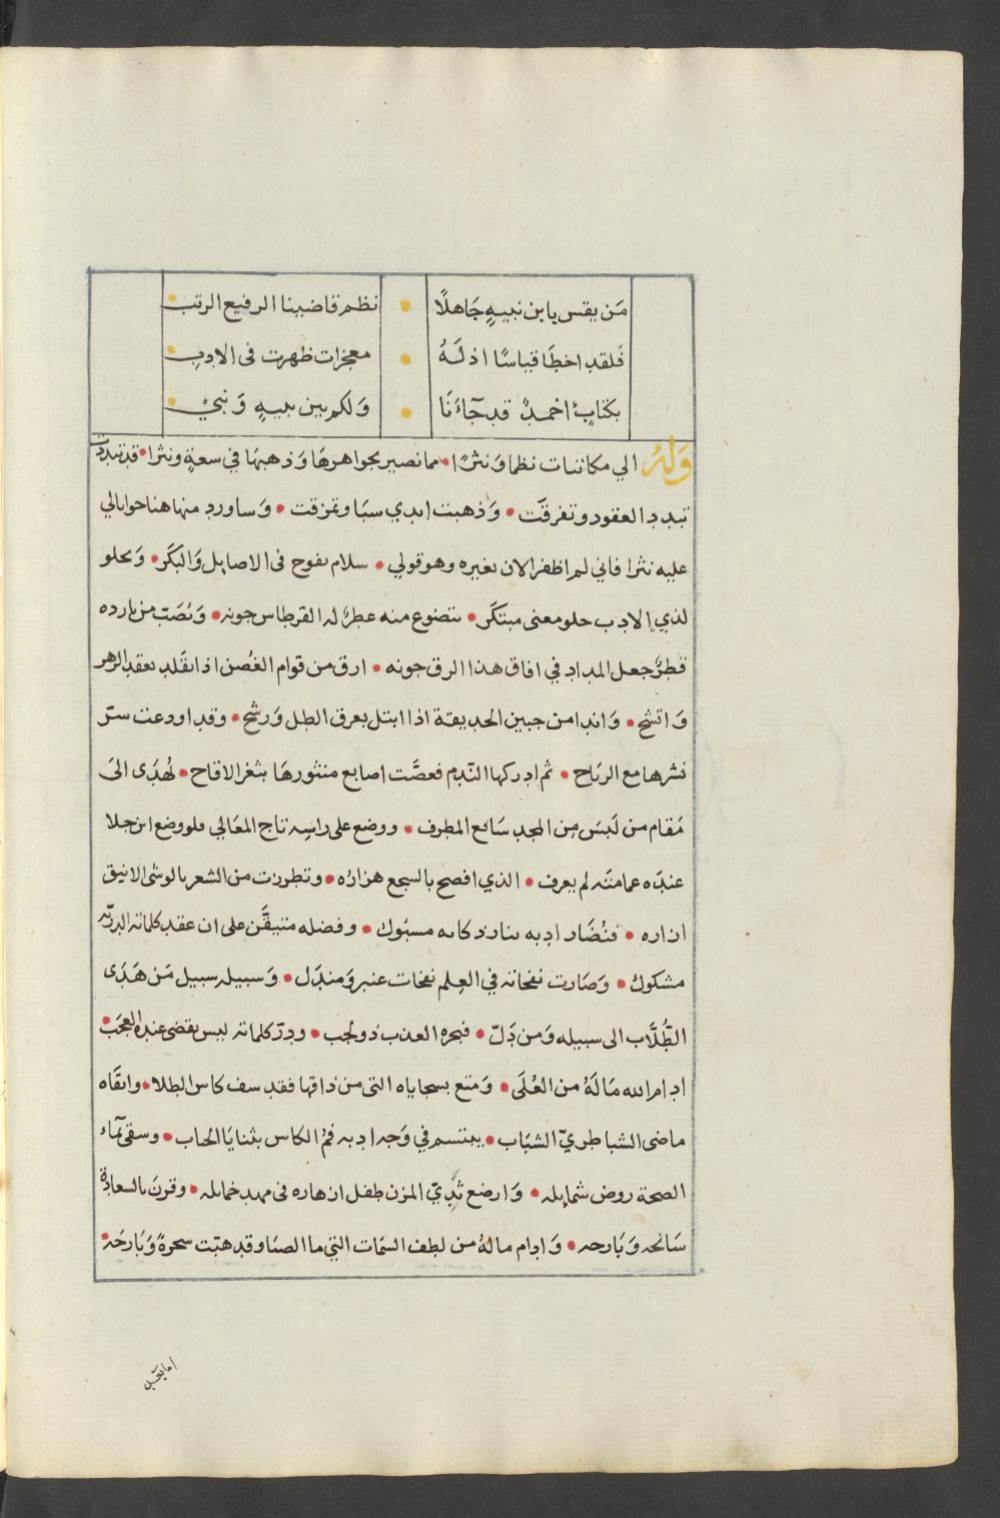 مَن يقس يا بن نبيهٍ جَاهلًا • نظم قاضينا الرفيع الرتب •
فَلقد اخطَا قياسًا اذ لَهُ • معجزات ظهرت فى الادبِ •
بكتابٍ احمدٌ قد جَآءنَا • وَلكم بين نبيهٍ وَنبيْ •
وَلهُ الي مكاتبات نظما وَنثرًا • مما نصير بجواهرهَا وَذهبهَا في سعةٍ ونثرا • قد تبددت
تبدد العقود وتفرقَت • وَذهبت ايدي سبَا وتمزقت • وَساورد منها هنا جوابا لي
عليه نثرا فاني لم اظفر الان بغيره وهو قولي • سلام يفوح فى الاصايل وَالبكَر • وَيحلو
لذي الادب حلو معنى مبتكَر • تتضوع منه عطرٌ له القرطاس جونه • وَنصَبّ من بارده
قطرٌ جعل المداد في افاق هذا الرق جونه • ارق من قوام الغُصن اذا تقَلد بعقد الزهر
وَاتشح • وَاندا من جبين الحديقة اذا ابتل بعرق الطل وَرشح • وقد اودعت سرّ
نشرها مع الريَاح • ثم ادركها النّدم فعضَّت اصابع منثورهَا بثغر الاقاح • تُهدَى الىَ
مَقام من لَبسَ مِن المجد سَابغ المطرف • ووضع على راسِه تاج المعَالي فلو وضع ابن جلا
عندَه عمامتَه لم يعرف • الذي افصح بالسجع هزارُه • وتطورت من الشعر بالوشى الانيق
ازاره • فنُضَار ادبه بنار ذكائه مسبُوك • وفضله متيقَّن على ان عقد كلماته الدرّيه
مشكوك • وَصَارت نفحاته في العِلم نفحَات عنبر وَمندَل • وَسبيله سبيل مَن هَدَى
الطُلَّاب الى سبيله وَمن دَلّ • فبحره العذب ذو لُجب • ودرّ كلماته ليس يقضى عنده العجَبَ •
ادام الله مَا لَهُ من العُلَى • وَمتع بسجاياه التى من ذاقها فقد سف كاس الطلا • وابقَاه
ماضى الشبا طريّ الشبَاب • يبتسم في وَجه ادبه فمُ الكاس بثنايَا الحباب • وسقى بمآء
الصحة روض شمايله • وَارضع ثَديّ المزن طفل ازهاره فى مهد خمايله • وقرنَ بالسعادة
سَانحه وَبَارحه • وَادام ما لهُ من لطف السمَات التي ما الصبَا وقد هبّت سحرةً وَبَارحَه •
اما بعد